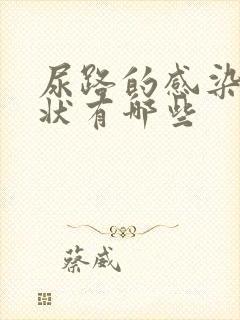 尿路的感染
状有哪些
蔡威